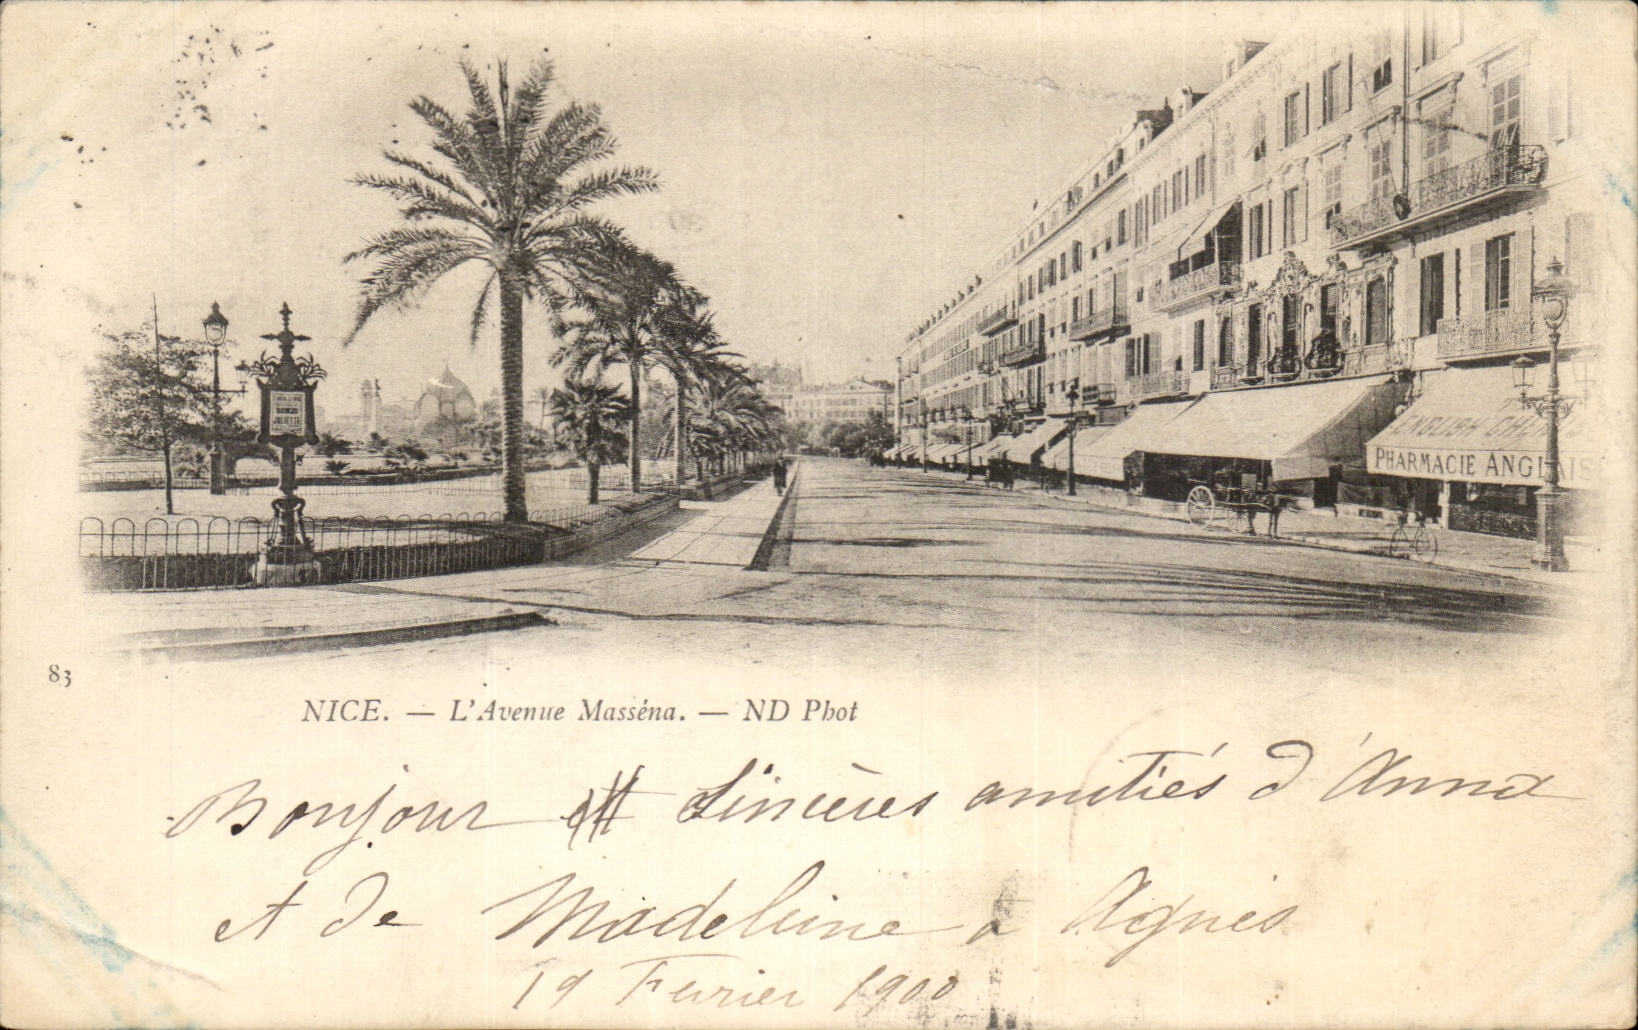 JULIETTE
ENGLISH
PHARMACIE ANGLAIS
83
NICE. — L'Avenue Masséna. — ND Phot
Bonjour et Sincères amitiés d'Anna
et de Madeleine à Agnès
19 Fevrier 1900